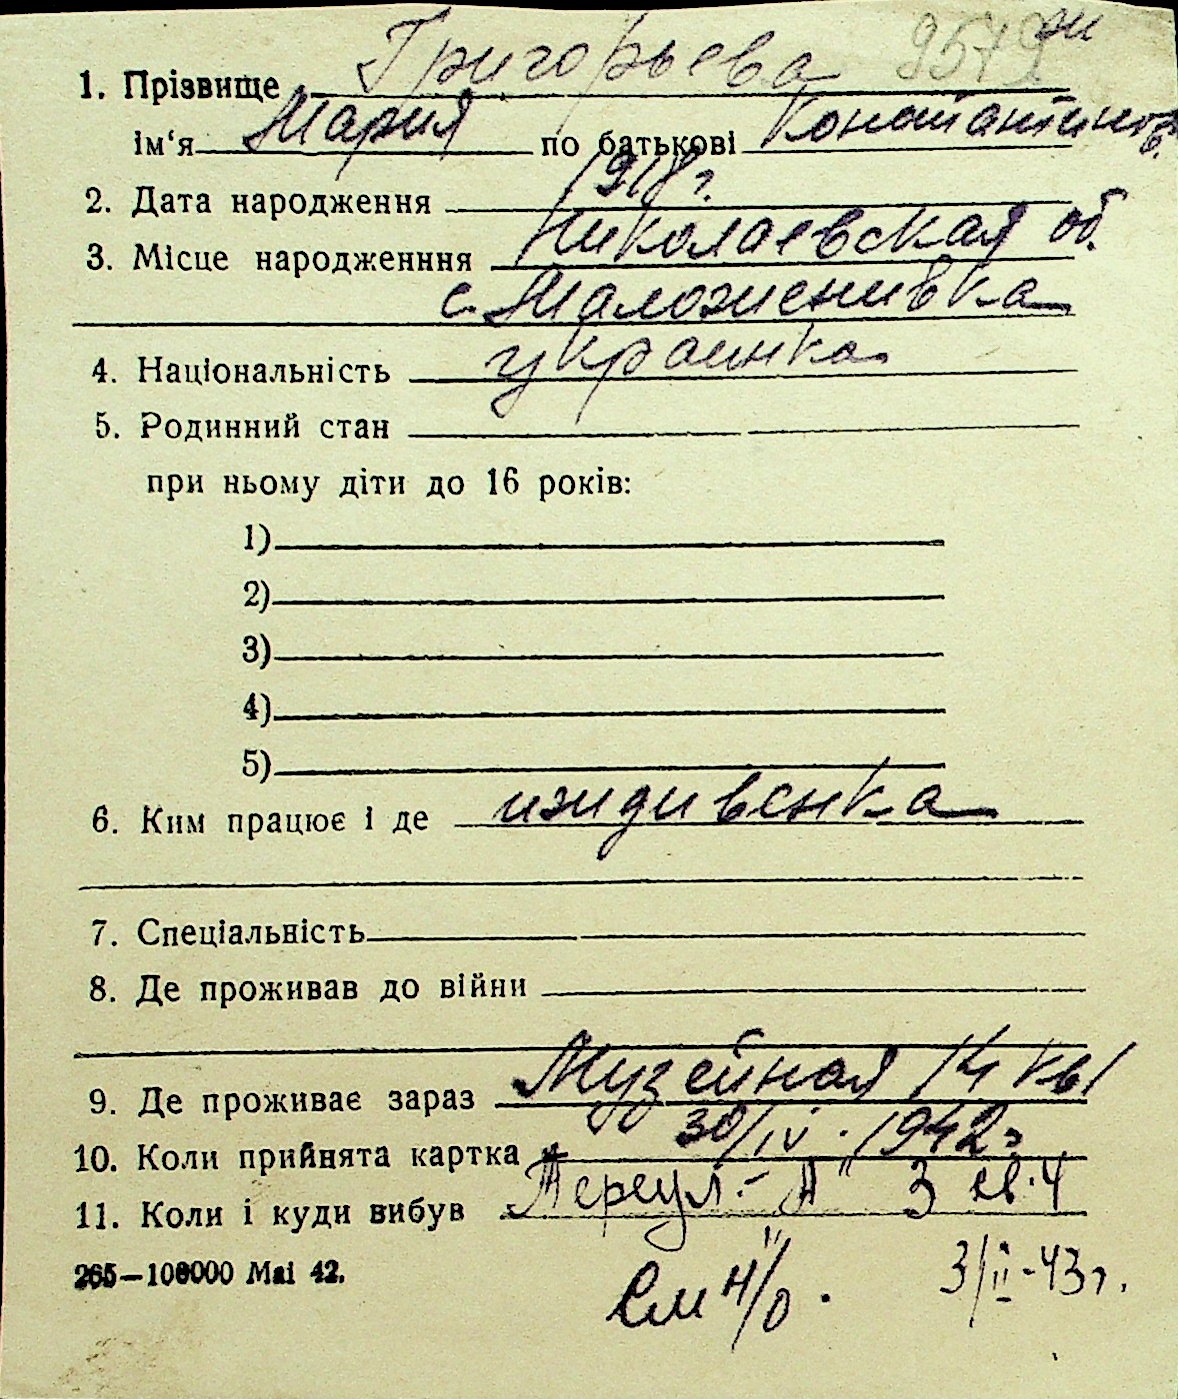 9579 жи
1. Прізвище Григорьева
ім‘я Мария по батькові Константинов.
2. Дата народження 1918 г.
3. Місце народженння Николаевская об.
с. Маложенивка
4. Національність украинка
5. Родинний стан
при ньому діти до 16 років:
1)
2)
3)
4)
5)
6. Ким працює і де иждивенка
7. Спеціальність
8. Де проживав до війни
9. Де проживає зараз Музейная 14 кв 1
10. Коли прийнята картка 30/IV. 1942 г.
11. Коли і куди вибув 3 кв. 4
265—100000 Маі 42.
См н/о. 3/II-43 г.